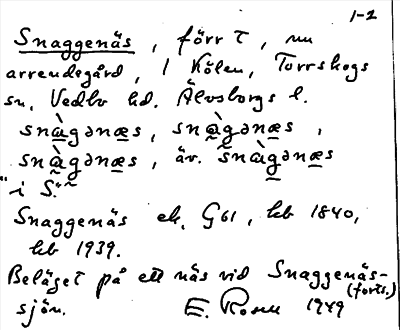 1-2
Snaggenäs, förr t, nu
arrendegård, i Kölen, Torrskogs
sn, Vedbo hd. Älvsborgs l.
snàgənæs, snàgənæs,
snàgənæs, äv. snàgənæs
"i S."
Snaggenäs ek. G61, hb 1840,
hb 1939.
Beläget på ett näs vid Snaggenäs-
(forts.)
sjön. E. Rosell 1949